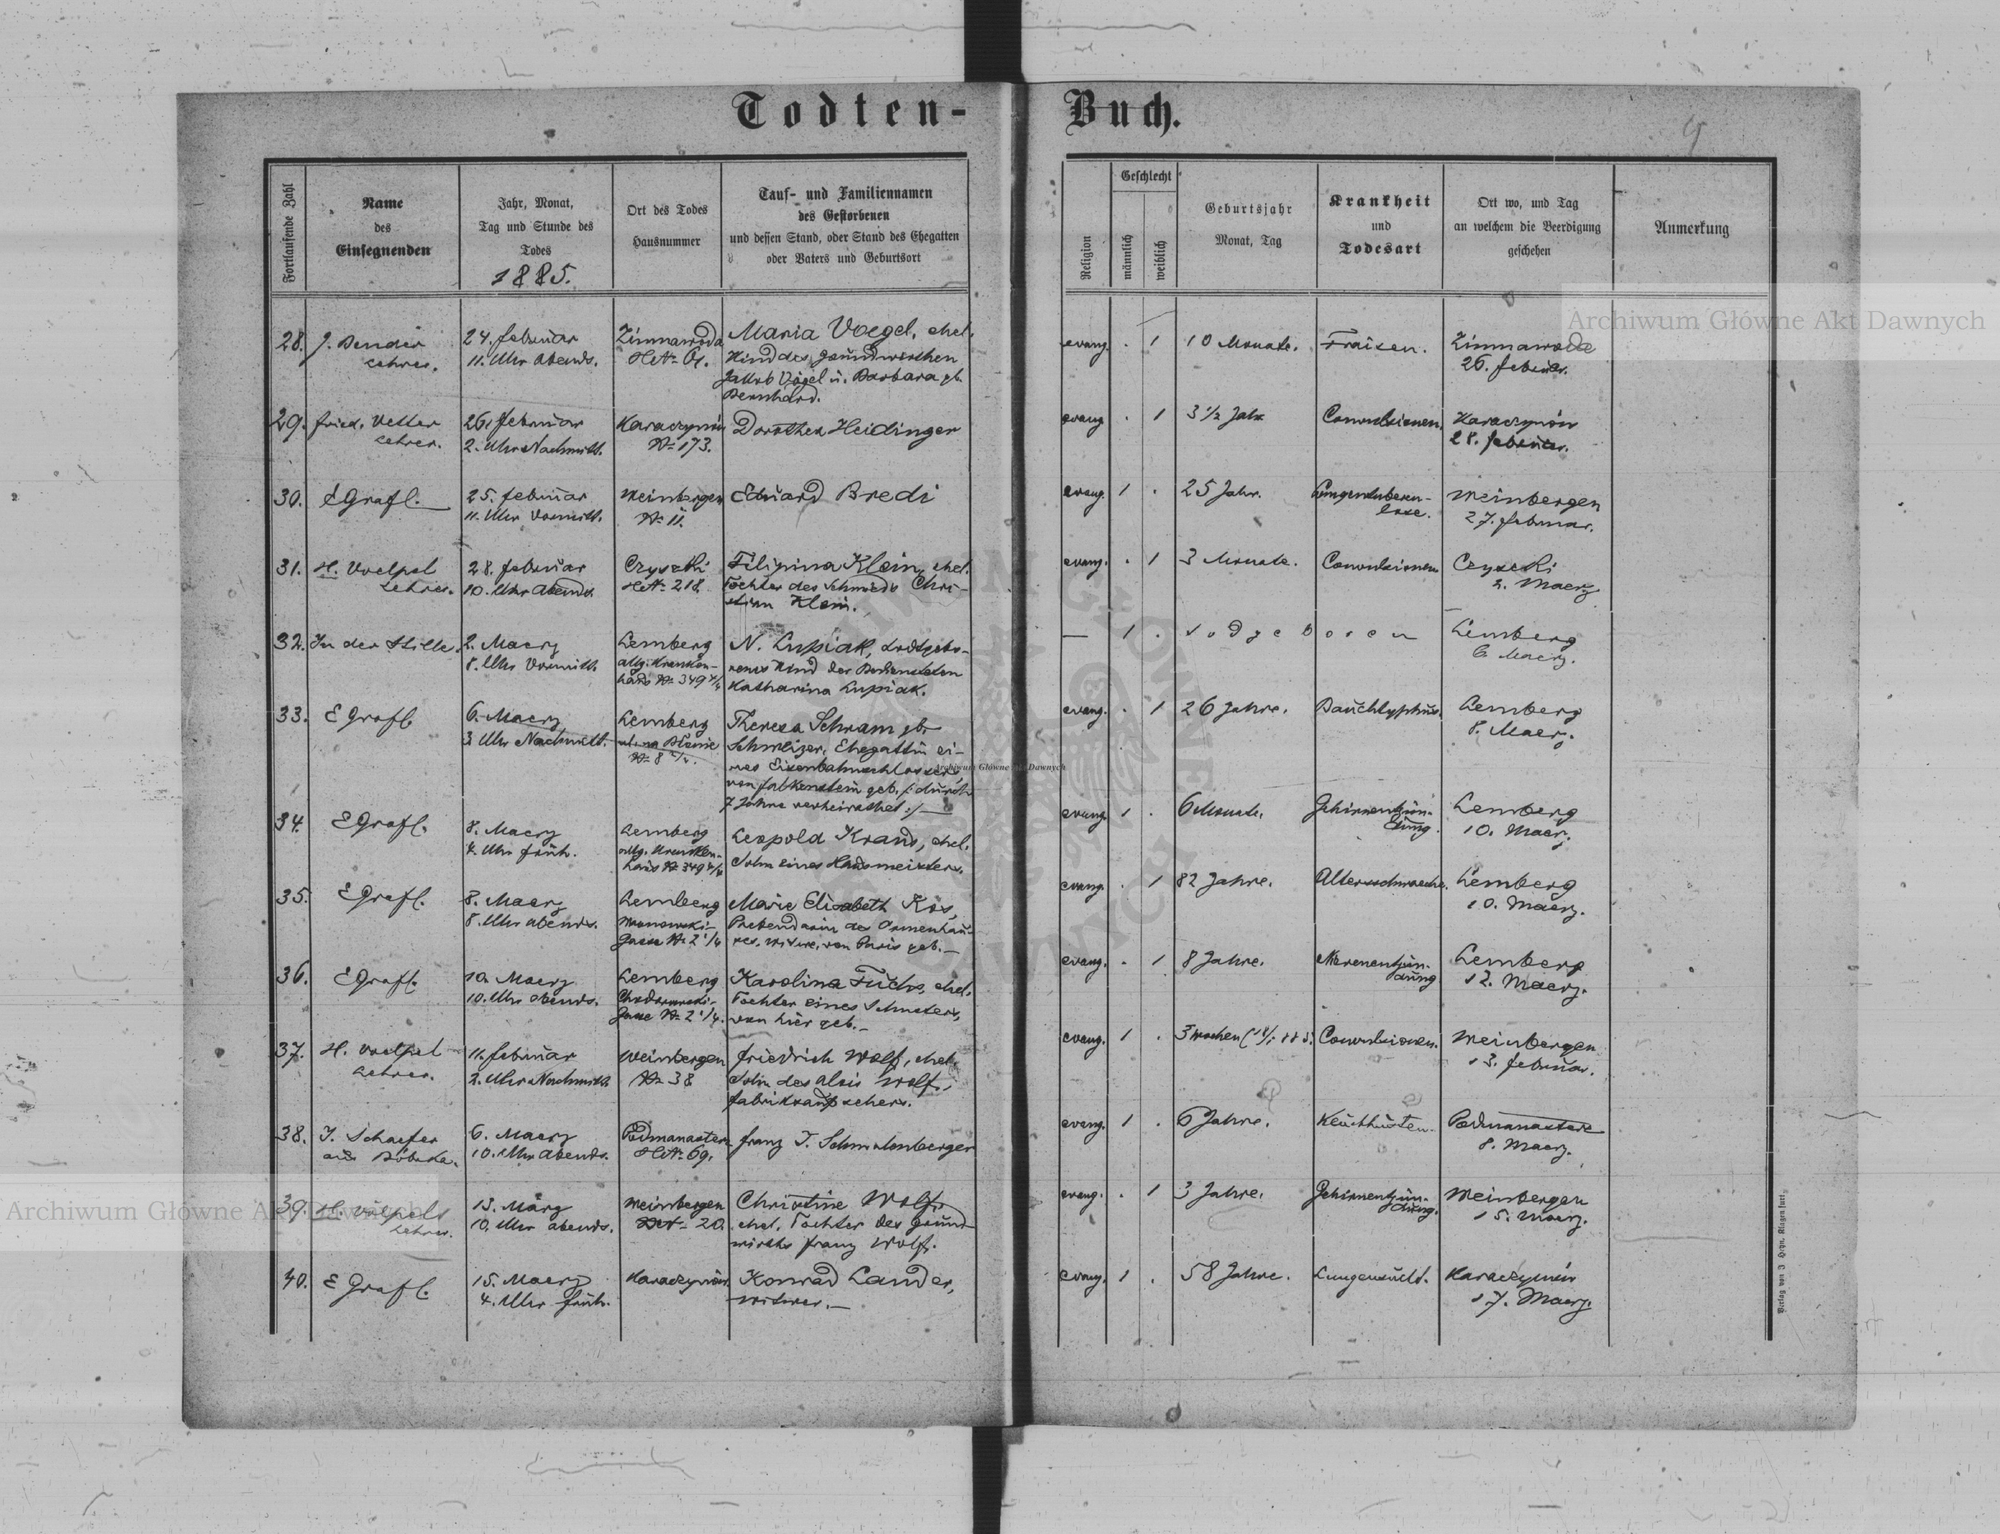 Todten-Buch.
9
Fortlaufende Zahl
Name
des
Einsegnenden
Jahr, Monat,
Tag und Stunde des
Todes
1885.
Ort des Todes
Hausnummer
Tauf- und Familiennamen
des Gestorbenen
und dessen Stand, oder Stand des Ehegatten
oder Vaters und Geburtsort
Religion
Geschlecht
männlich
weiblich
Geburtsjahr
Monat, Tag
Krankheit
und
Todesart
Ort wo, und Tag
an welchem die Beerdigung
geschehen
Anmerkung
28. J. Bender
Lehrer.
24. Februar
11. Uhr Abends.
Zimnawoda
Maria Voegel, ehel.
Kind des Grundwirthen
Jakob Vögel u. Barbara gb.
Bernhard.
evang. . 1 10 Monate. Fraisen. Zimnawoda
26. Februar.
29. Fried. Vetter
Lehrer.
26. Februar
2. Uhr Nachmitt.
Karaczynów
№ 173.
Dorothea Heidinger
evang . 1 3 1/2 Jahr Convulsionen. Karaczynów
28. Februar.
30. E Grafl.
25. Februar
11. Uhr Vormitt.
Weinbergen
№ 11.
Eduard Bredi
evang. 1 . 25 Jahr. Weinbergen
27. Februar.
31. H. Voelpel
Lehrer.
28. Februar
10. Uhr Abends.
Czyszki
218.
Filipina Klein, ehel.
Tochter des Schmieds Chri-
stian Klein.
evang. . 1 3 Monate. Convulsionen Czyszki
2. Maerz
32. In der Stille.
2. Maerz
8. Uhr Vormitt.
Lemberg
allg. Kranken-
haus № 349 4/4
N. Lupiak, todtgebo-
renes Kind der Bediensteten
Katharina Lupiak.
— 1 . todgeboren Lemberg
6. Maerz.
33. E Grafl.
6. Maerz
3 Uhr Nachmitt.
Lemberg
№ 8
Theresa Schram gb.
Schweizer, Ehegattin ei-
nes Eisenbahnschlossers
von Falkenstein geb. /: durch
7 Jahre verheirathet :/ —
evang. . 1 26 Jahre. Bauchtyphus. Lemberg
8. Maerz.
34. E Grafl.
8. Maerz
Uhr früh.
Lemberg
allg. Kranken-
haus № 349 4/4
Leopold Kraus, ehel.
Sohn eines Hausmeisters.
evang. 1 . 6 Monate. Gehirnentzün-
dung. Lemberg
10. Maerz.
35. E Grafl.
8. Maerz
8. Uhr abends.
Lemberg
Gasse № 2 1/4
Marie Elisabeth Kos,
Prebendarin des Armenhau-
ses, Witwe, von Paris geb. —
evang. . 1 82 Jahre. Altersschwaeche. Lemberg
10. Maerz.
36. E Grafl.
10. Maerz
10. Uhr abends.
Lemberg
Gasse № 2 1/4.
Karolina Fuchs, ehel.
Tochter eines Schusters,
von hier geb. —
evang. . 1 8 Jahre. Nierenentzün-
dung Lemberg
12. Maerz.
37. H. Voelpel
Lehrer.
11. Februar
2. Uhr Nachmitt.
Weinbergen
№ 38
Friedrich Wolf, ehel.
Sohn des Alois Wolf,
Fabriksaufsehers.
evang. 1 . 3 Wochen Convulsionen. Weinbergen
13. Februar.
38. J. Schaefer
aus Bóbrka.
6. Maerz
10. Uhr Abends.
Podmanaster.
69.
Franz J. Schmalenberger
evang. 1 . 6 Jahre. Keuchhusten. Podmanaster
8. Maerz.
39. H. Voelpel
Lehrer.
13. März
10. Uhr abends.
Weinbergen
20.
Christine Wolf,
ehel. Tochter des Grund-
wirths Franz Wolf.
evang. . 1 3 Jahre. Gehirnentzün-
dung. Weinbergen
15. Maerz.
40. E Grafl.
15. Maerz
4. Uhr früh.
Karaczynów
Konrad Lander,
Witwer. —
evang. 1 . 58 Jahre. Lungensucht. Karaczynów
17. Maerz.
Archiwum Główne Akt Dawnych
Archiwum Główne Akt Dawnych
Archiwum Główne Akt Dawnych